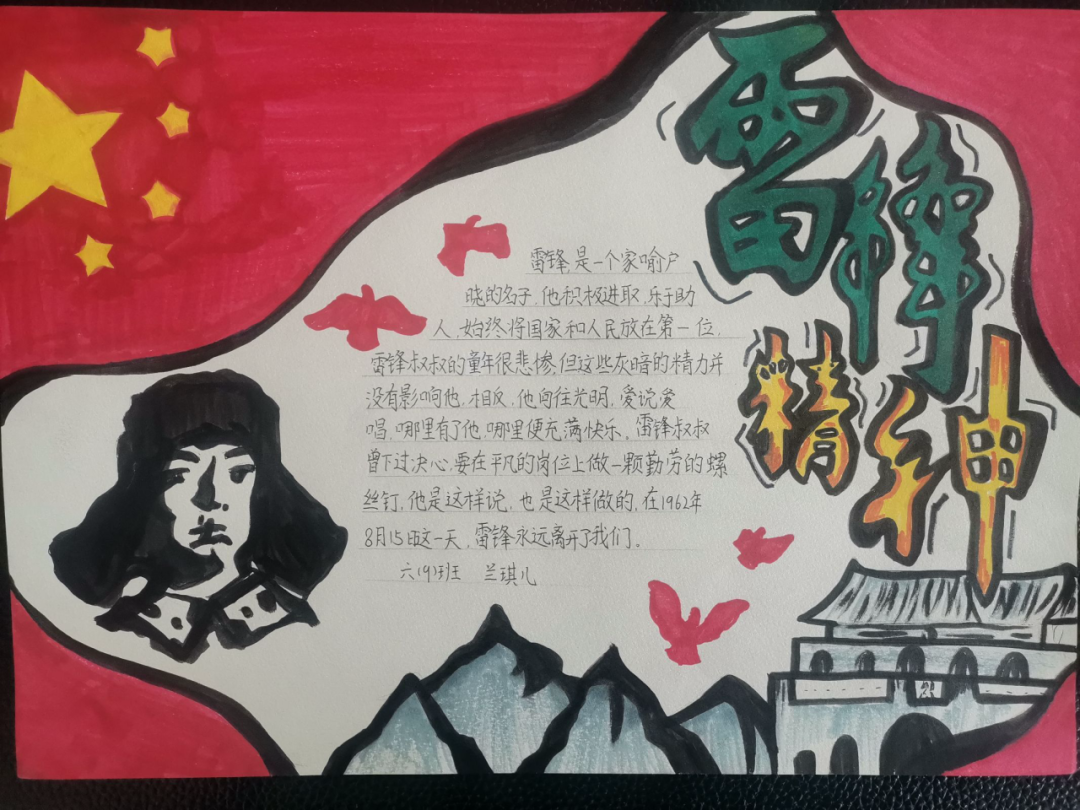 雷锋
精神
雷锋,是一个家喻户
晓的名子,他积极进取,乐于助
人,始终将国家和人民放在第一位,
雷锋叔叔的童年很悲惨,但这些灰暗的精力并
没有影响他,相反,他向往光明,爱说爱
唱,哪里有了他,哪里便充满快乐,雷锋叔叔
曾下过决心:要在平凡的岗位上做一颗勤劳的螺
丝钉,他是这样说,也是这样做的,在1962年
8月15日这一天,雷锋永远离开了我们。
六(9)班 兰琪儿